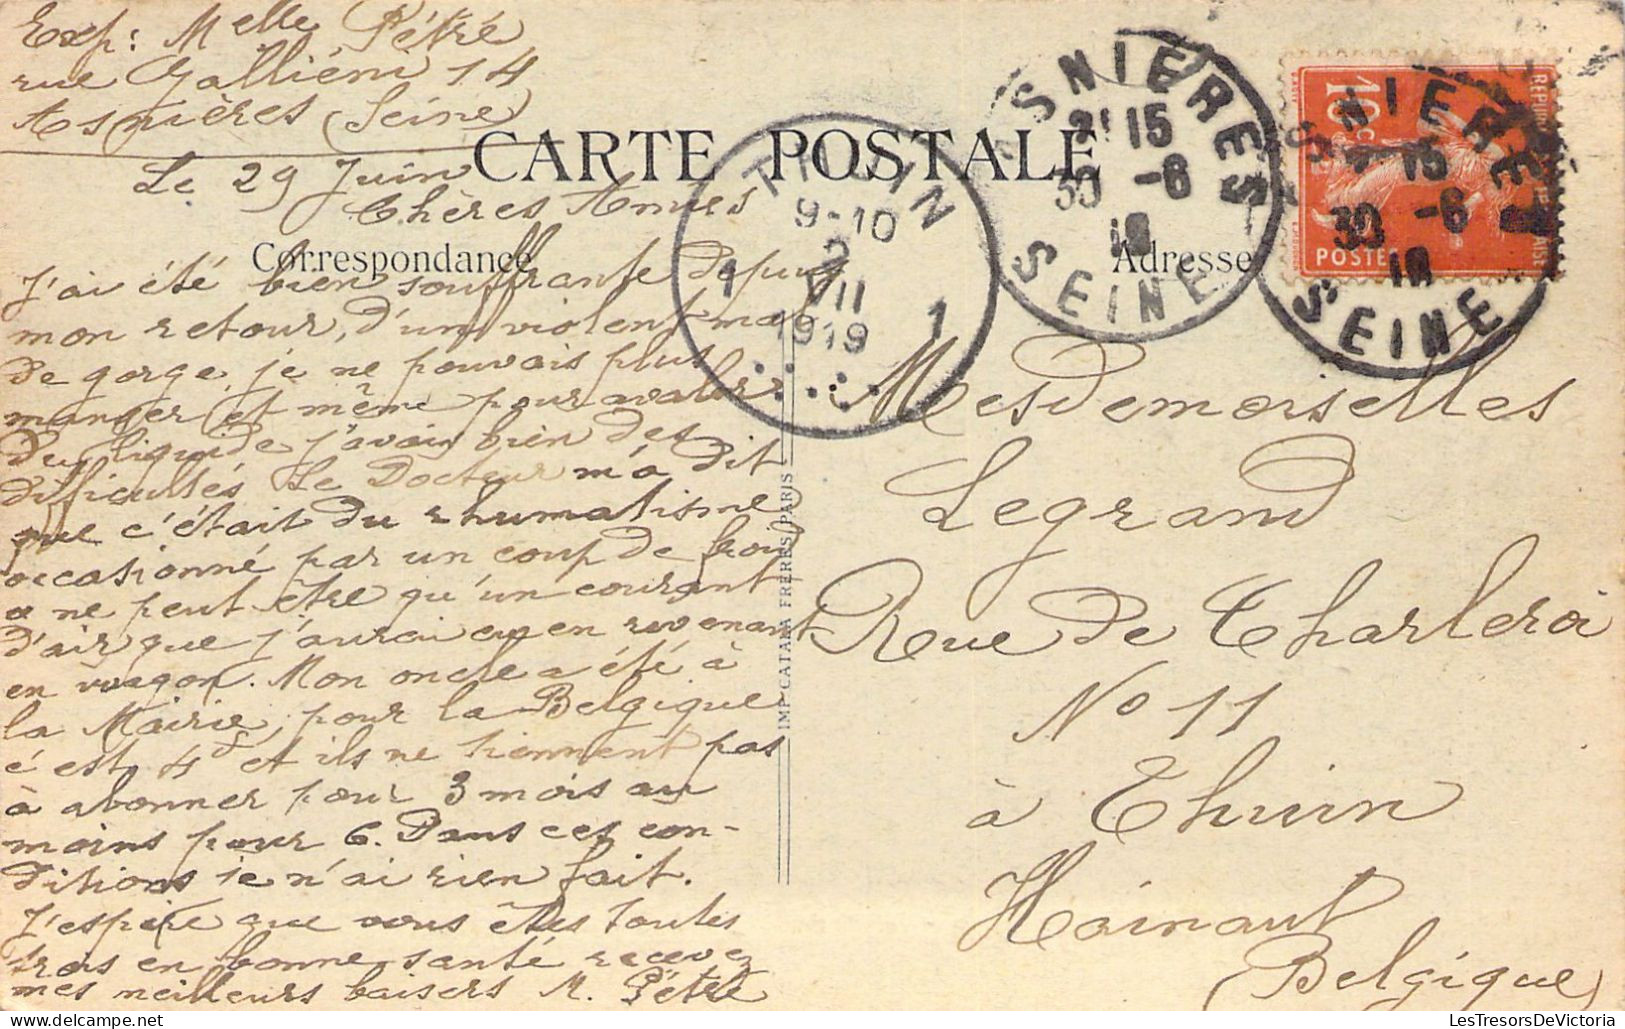 Exp: Melle Pétré
rue Galliéni 14
Asnières (Seine)
CARTE POSTALE
Le 29 Juin
Chères Amies
Correspondance
Adresse
J'ai été bien souffrante depuis
mon retour, d'un violent mal
de gorge, je ne pouvais plus
manger et même pour avaler
du liquide j'avais bien des
difficultés. Le Docteur m'a dit
que c'était du rhumatisme
occasionné par un coup de froid
a ne peut être qu'un courant
d'air que j'aurai eu en revenant
en wagon. Mon oncle a été à
la Mairie, pour la Belgique
c'est 4 et ils ne tiennent pas
à abonner pour 3 mois au
moins pour 6. Dans ces con-
ditions je n'ai rien fait.
J'espère que vous êtes toutes
trois en bonne santé recevez
mes meilleurs baisers M. Pétré
THUIN
9-10
2
VII
1919
1 1
ASNIERES
21 15
30 -6
19
SEINE
ASNIERES
15
30 -6
19
SEINE
10c
POSTES
IMP. CATALA FRERES, PARIS
Mesdemoiselles
Legrand
Rue de Charleroi
No 11
à Thuin
Hainaut
(Belgique)
LesTresorsDeVictoria